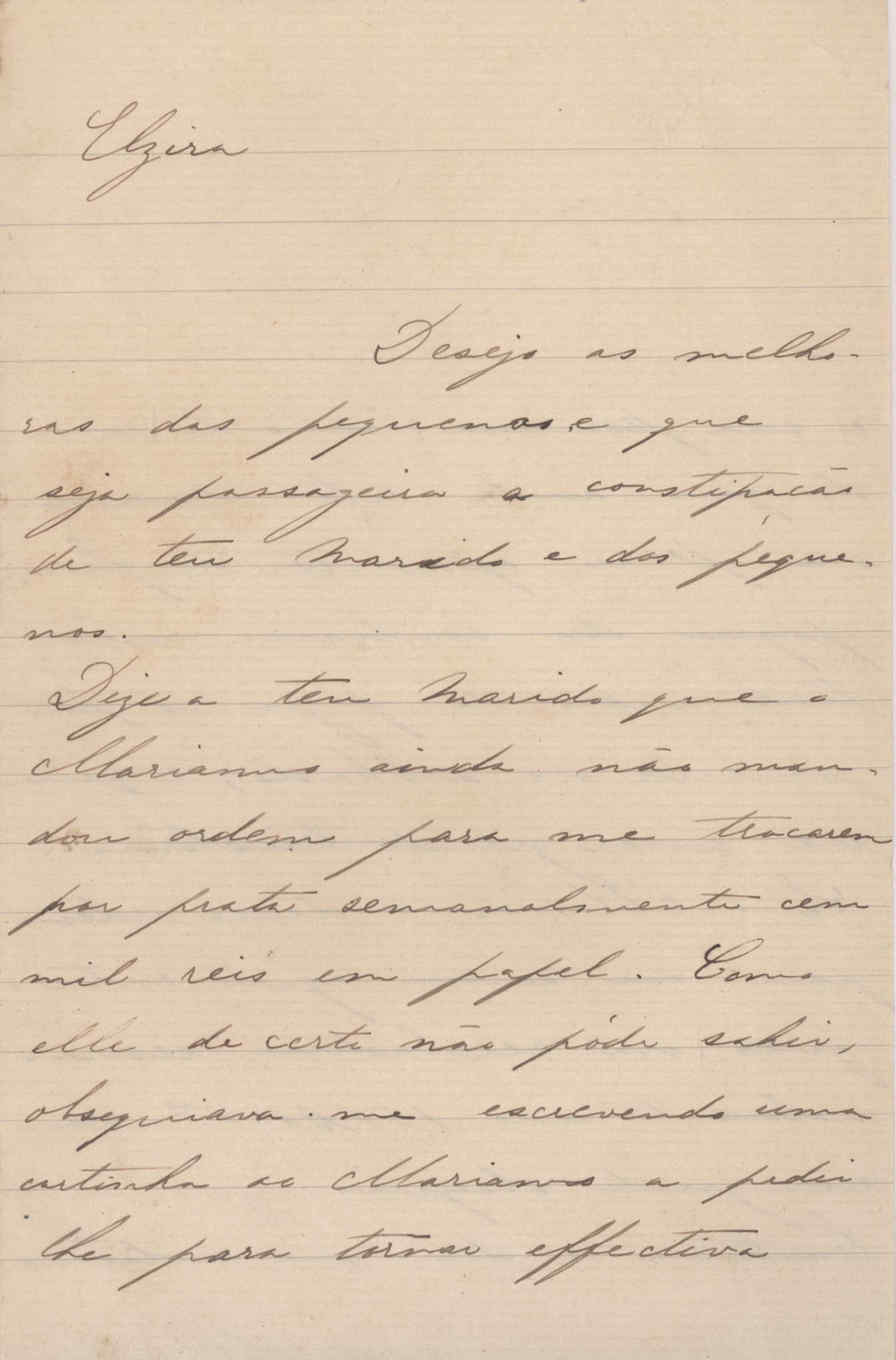 Elzira
Desejo as melho-
ras dos pequenos, e que
seja passageira a constipação
de teu marido e dos peque-
nos.
Dize a teu marido que o
Marianno ainda não man-
dou ordem para me trocarem
por prata semanalmente cem
mil reis em papel. Como
elle de certo não póde sahir,
obsequiava-me escrevendo uma
cartinha ao Marianno a pedir
lhe para tornar effectiva